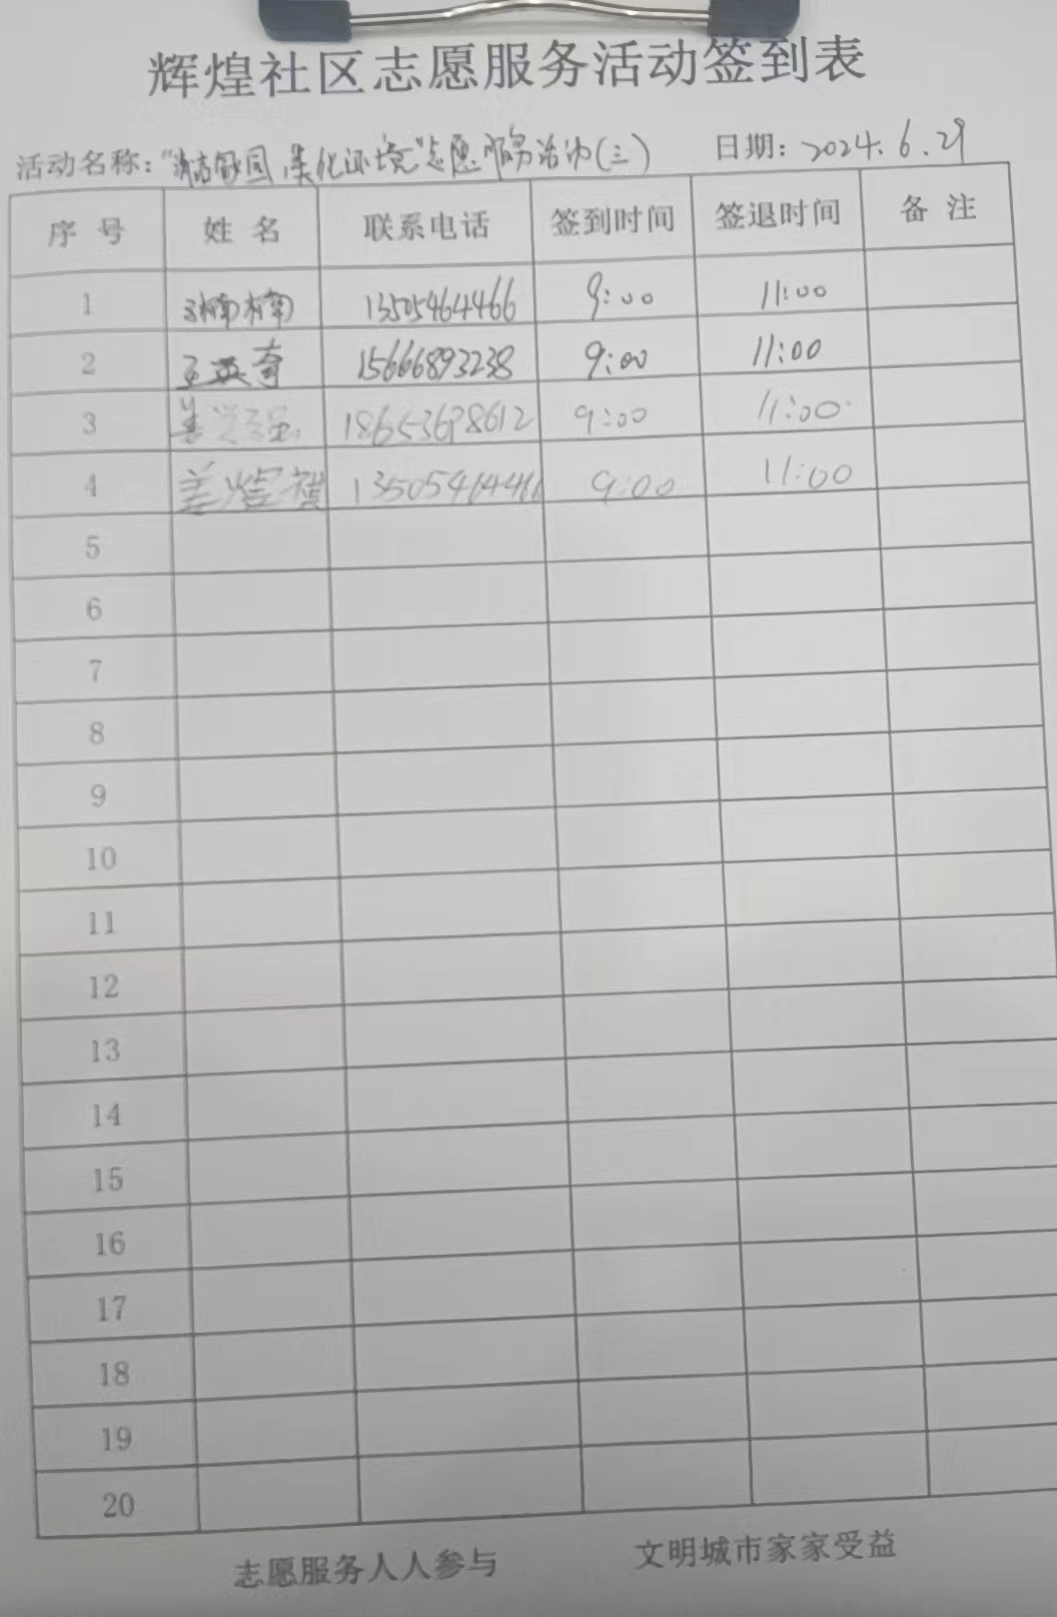 辉煌社区志愿服务活动签到表
活动名称：“清洁家园，美化环境”志愿服务活动(三) 日期：2024.6.29
序号 姓名 联系电话 签到时间 签退时间 备注
1 楠楠 13505464466 9:00 11:00
2 王英奇 15666893238 9:00 11:00
3 姜 18653698612 9:00 11:00
4 姜煜祺 9:00 11:00
5
6
7
8
9
10
11
12
13
14
15
16
17
18
19
20
志愿服务人人参与 文明城市家家受益